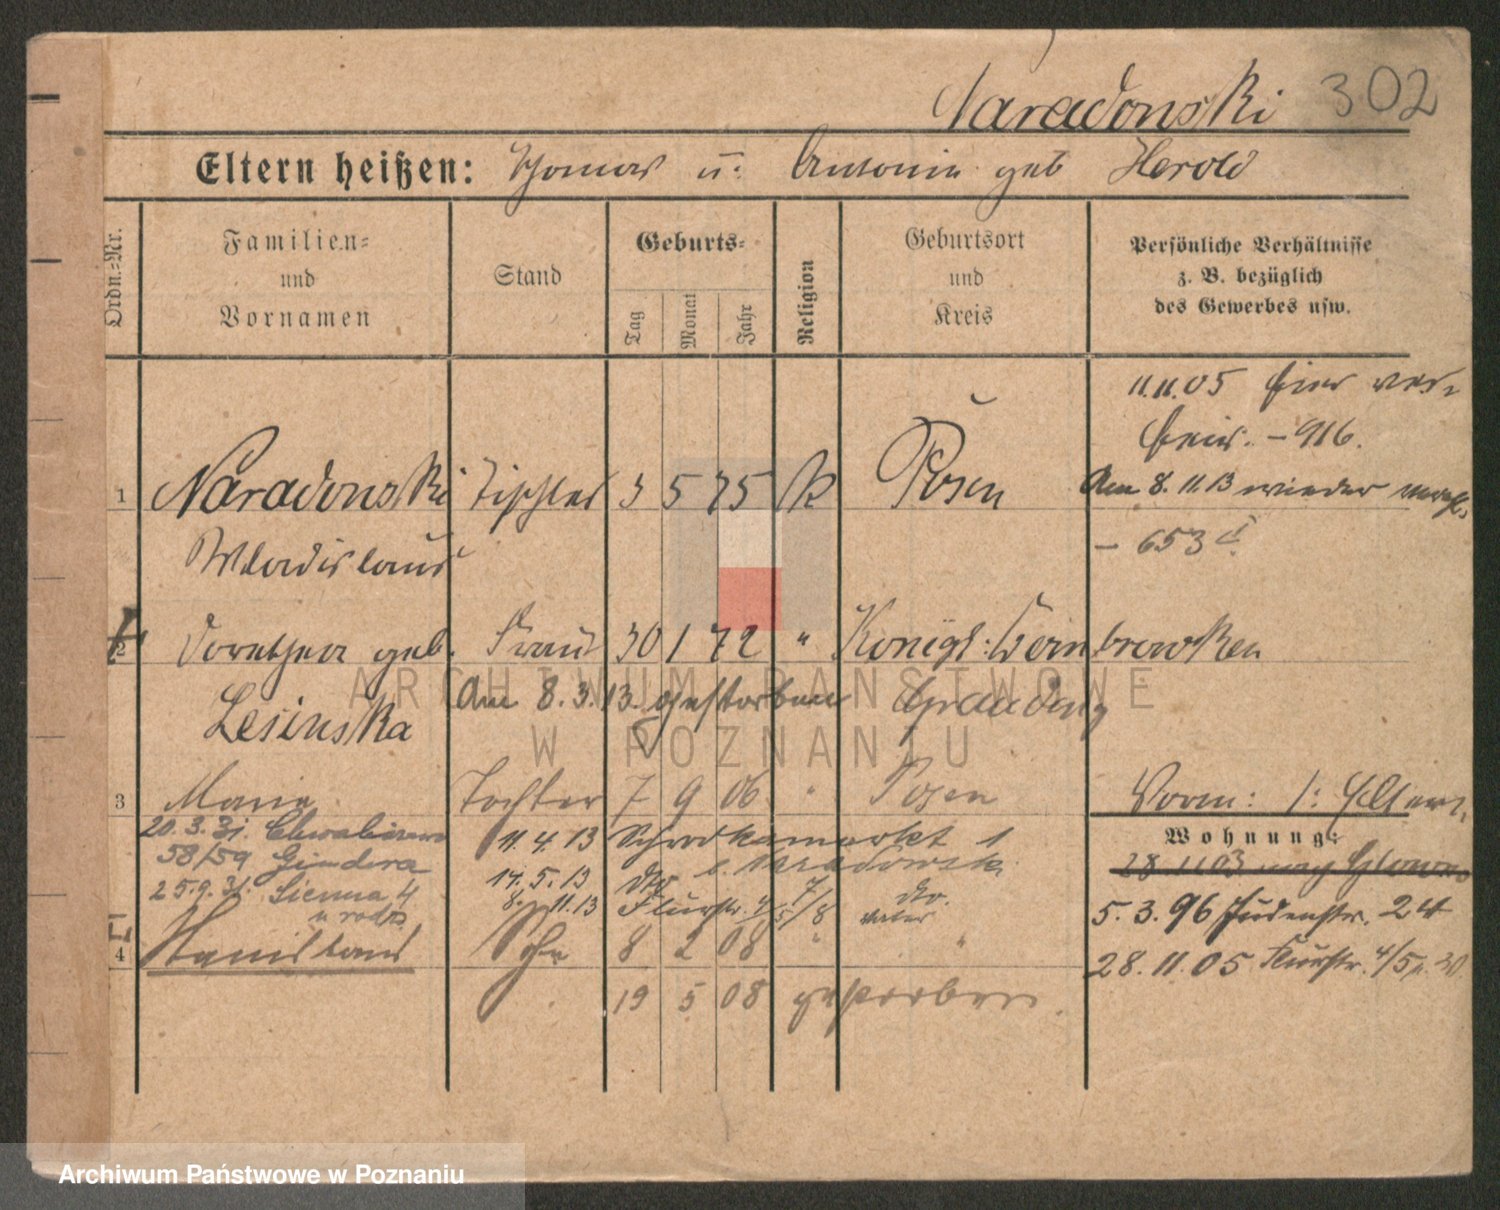 Naradonski 302
Eltern heißen: Thomas u. Antonie geb Herold
Ordn.=Nr.
Familien=
und
Vornamen
Stand
Geburts=
Tag
Monat
Jahr
Religion
Geburtsort
und
Kreis
Persönliche Verhältnisse
z. B. bezüglich
des Gewerbes usw.
11.11.05 hier ver=
heir. – 916.
1 Naradonski Tischler 3 5 75 K Posen
Am 8.11.13 wieder
– 653
Wladislaus
2 Dorothea geb. Frau 30 1 72 " Königl: Dombrowken
Lesinska Am 8.3.13. gestorben Graudenz
3 Marie Tochter 7 9 06 " Posen
Vorm: 1: Eltern
Wohnung:
20.3.31. Chwaliszewo
58/59 Gindera
25.9. 31. Sienna 4
u rodz.
11.4.13 Schrodkamarkt 1
14.5.13
8. 11.13 Flurstr. 4/5 7/8 do.
Vater
28 11 03
5.3.96 Judenstr. 24
28.11.05 Flurstr. 4/5
4 Stanislaus Sohn 8 2 08 " "
19 5 08 gestorben.
ARCHIWUM PAŃSTWOWE
W POZNANIU
Archiwum Państwowe w Poznaniu